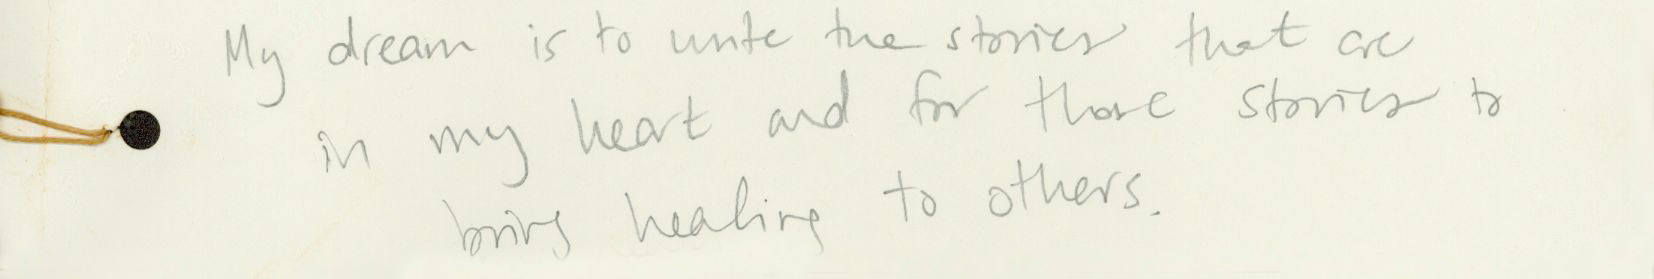 My dream is to write the stories that are
in my heart and for those stories to
bring healing to others.